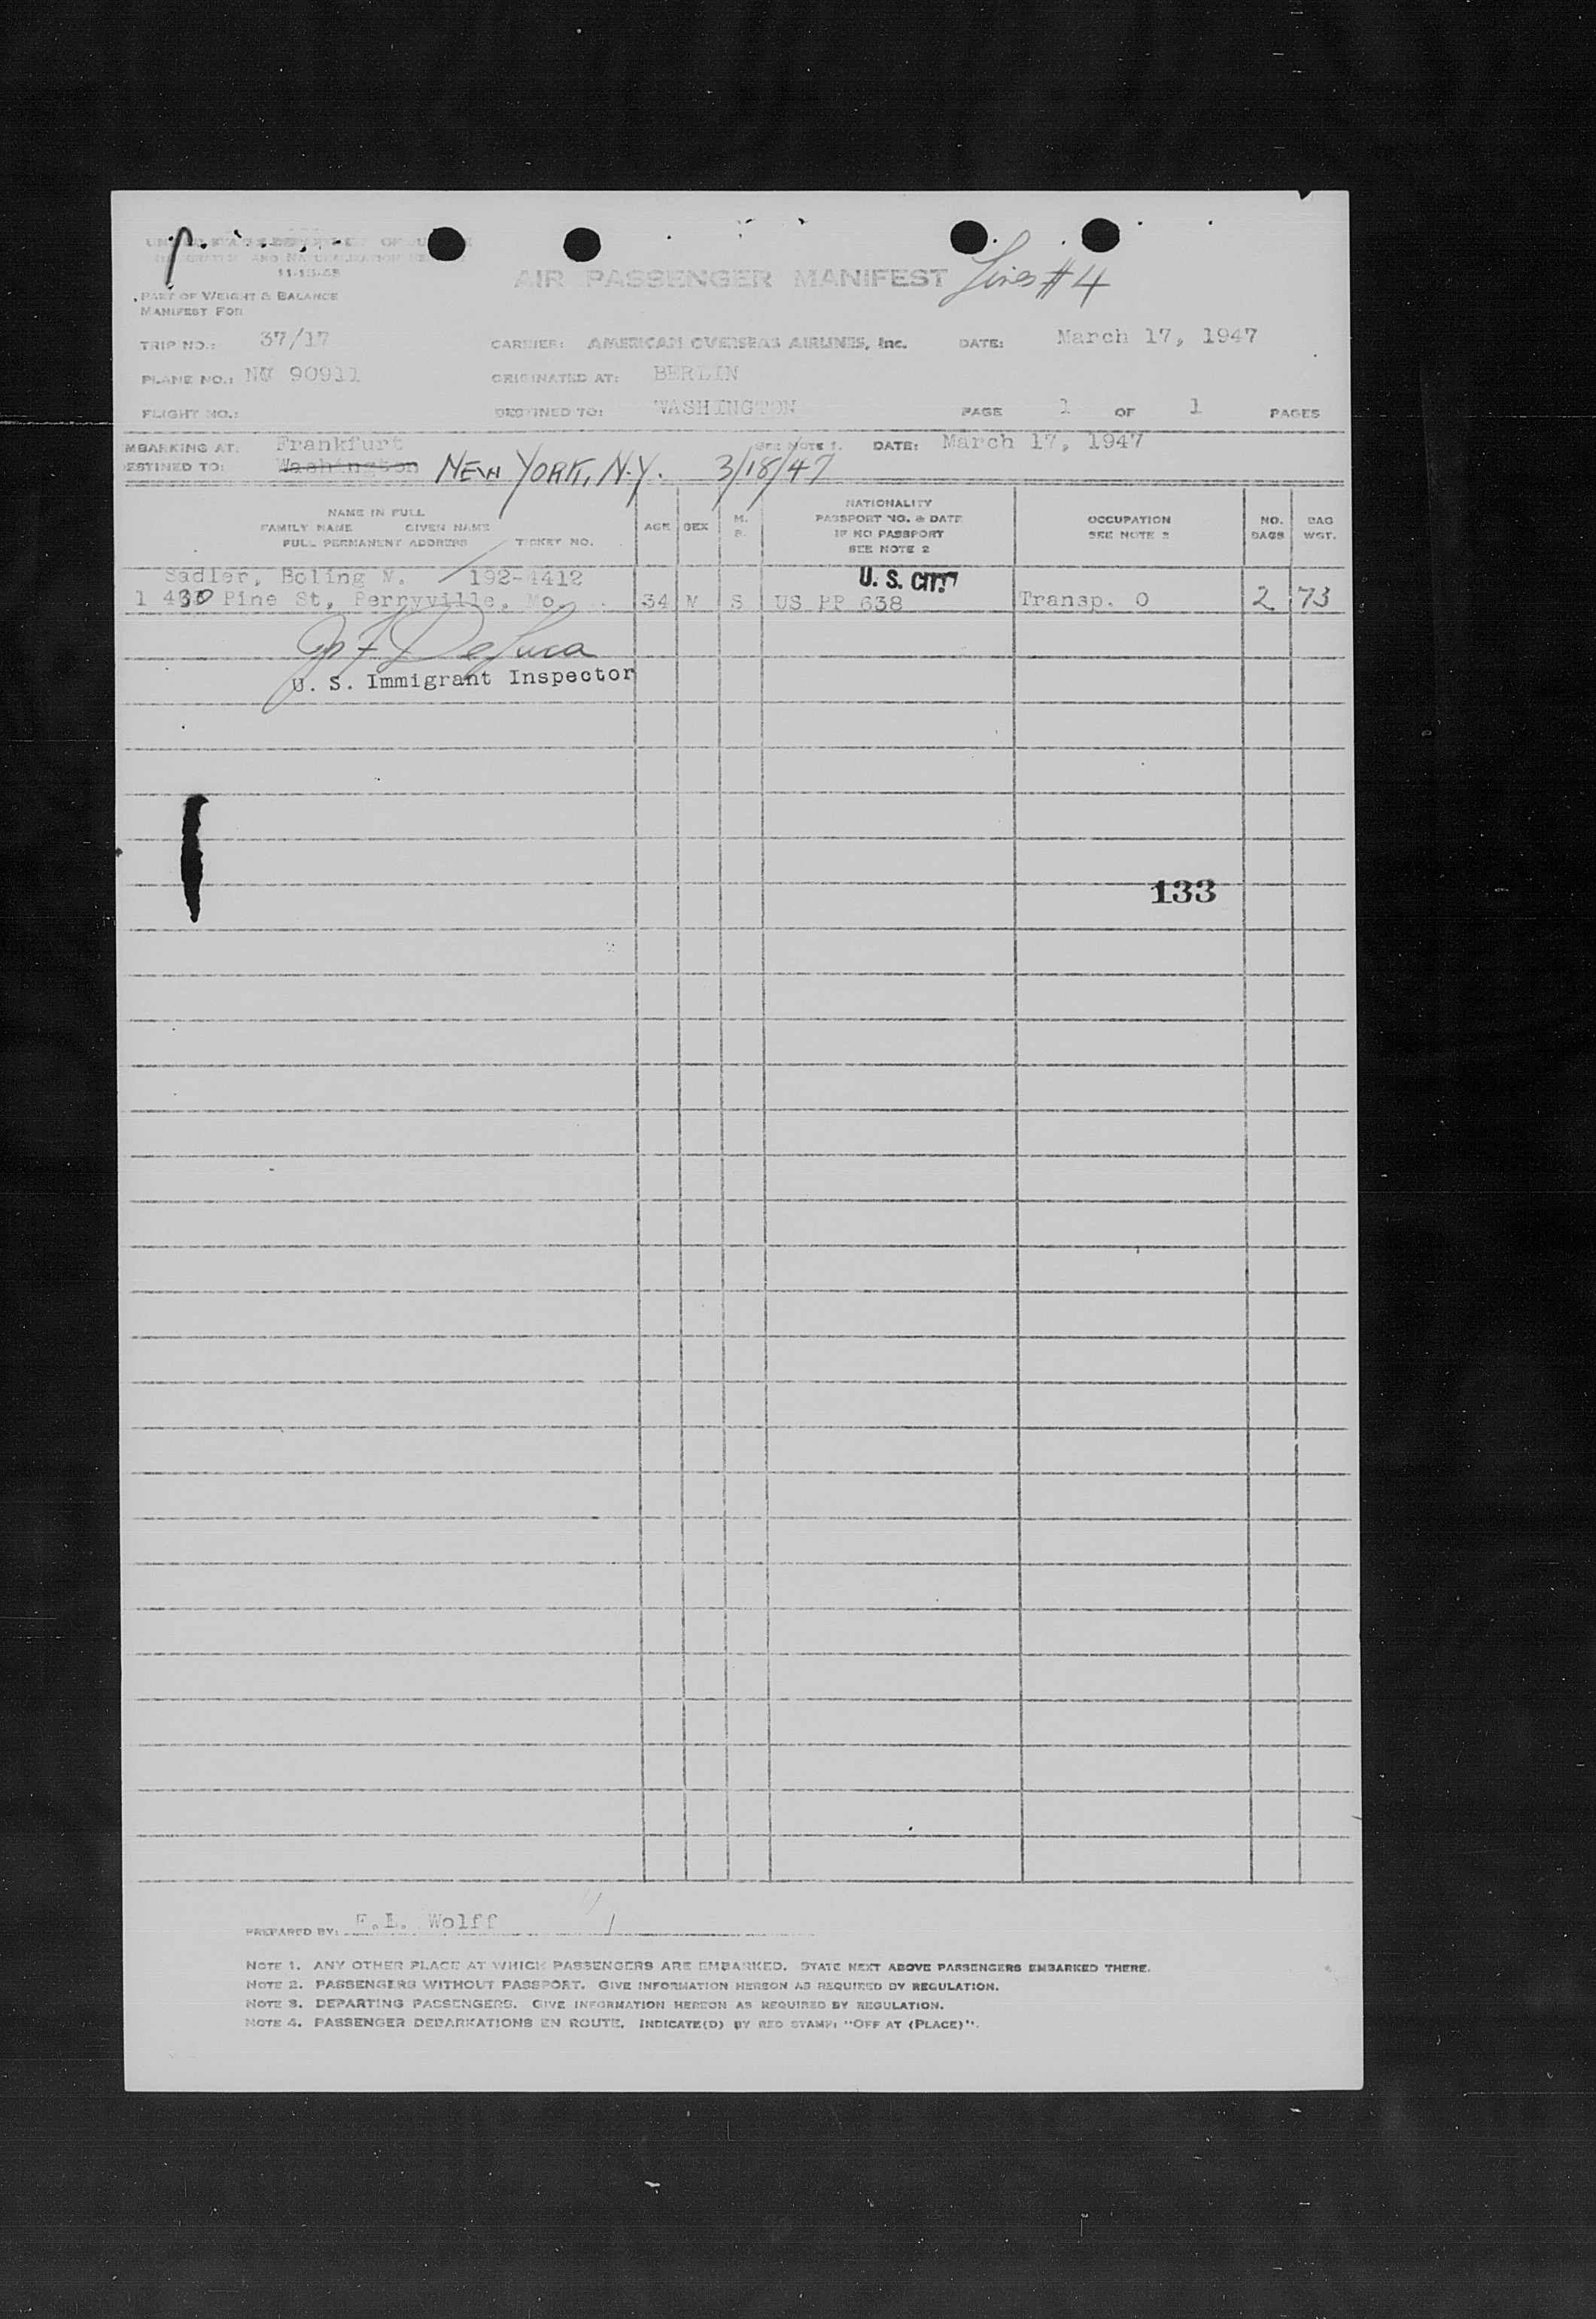 UNITED STATES DEPARTMENT OF JUSTICE
IMMIGRATION AND NATURALIZATION SERVICE
11-15-45
AIR PASSENGER MANIFEST #4
PART OF WEIGHT & BALANCE
MANIFEST FOR
TRIP NO.: 37/17 CARRIER: AMERICAN OVERSEAS AIRLINES, Inc. DATE: March 17, 1947
PLANE NO.: 90911 ORIGINATED AT: BERLIN
FLIGHT NO.: DESTINED TO: WASHINGTON PAGE 1 OF 1 PAGES
MBARKING AT: Frankfurt SEE NOTE 1. DATE: March 17, 1947
DESTINED TO: Washington NEW YORK, N.Y. 3/18/47
NAME IN FULL
FAMILY NAME GIVEN NAME
FULL PERMANENT ADDRESS TICKET NO.
AGE SEX M. S.
NATIONALITY
PASSPORT NO. & DATE
IF NO PASSPORT
SEE NOTE 2
OCCUPATION
SEE NOTE 3
NO. BAGS
BAG WGT.
Sadler, Boling 192-4412 U. S. CIT.
1 430 Pine St, Perryville, Mo. 34 M S US PP 638 Transp. O 2 73
DeLuca
U. S. Immigrant Inspector
133
PREPARED BY: Wolff
NOTE 1. ANY OTHER PLACE AT WHICH PASSENGERS ARE EMBARKED. STATE NEXT ABOVE PASSENGERS EMBARKED THERE.
NOTE 2. PASSENGERS WITHOUT PASSPORT. GIVE INFORMATION HEREON AS REQUIRED BY REGULATION.
NOTE 3. DEPARTING PASSENGERS. GIVE INFORMATION HEREON AS REQUIRED BY REGULATION.
NOTE 4. PASSENGER DEBARKATIONS EN ROUTE. INDICATE(D) BY RED STAMP: "OFF AT (PLACE)".